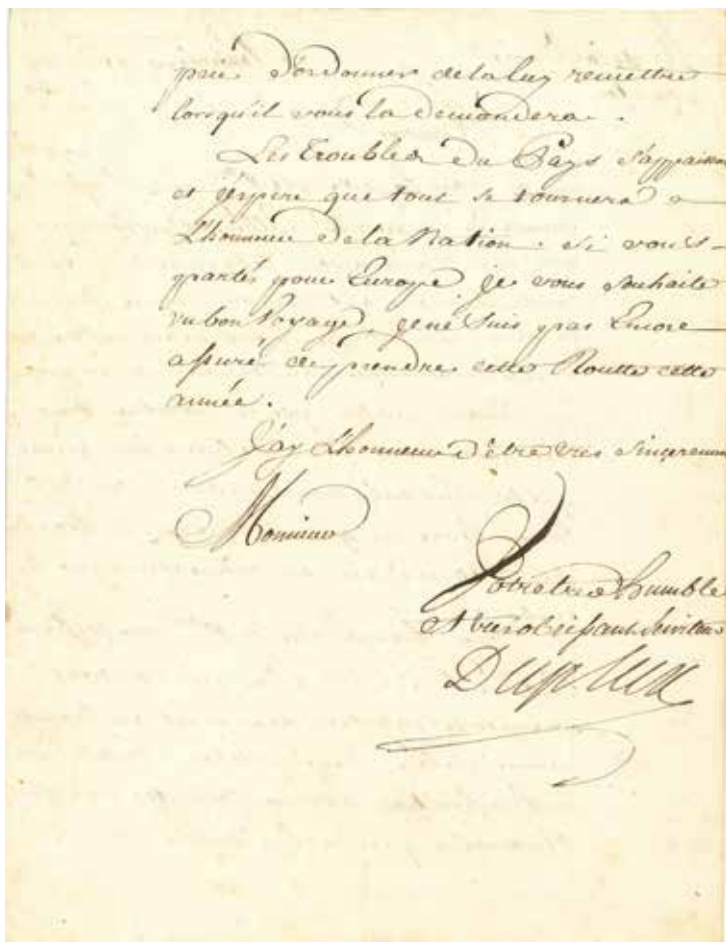 prié d'ordonner de la luy remettre
lorsqu'il vous la demandera.
Les Troubles du Pays s'appaisen
et j'espere que tout se tournera a
L'honneur de la Nation. si vous
partés pour Europe je vous souhaite
un bon Voyage, je ne suis pas Encore
assuré de prendre cette Routte cette
année.
J'ay L'honneur d'être tres sincerem
Monsieur
Votre tres humble
et tres obeissant Serviteur
Dupleix